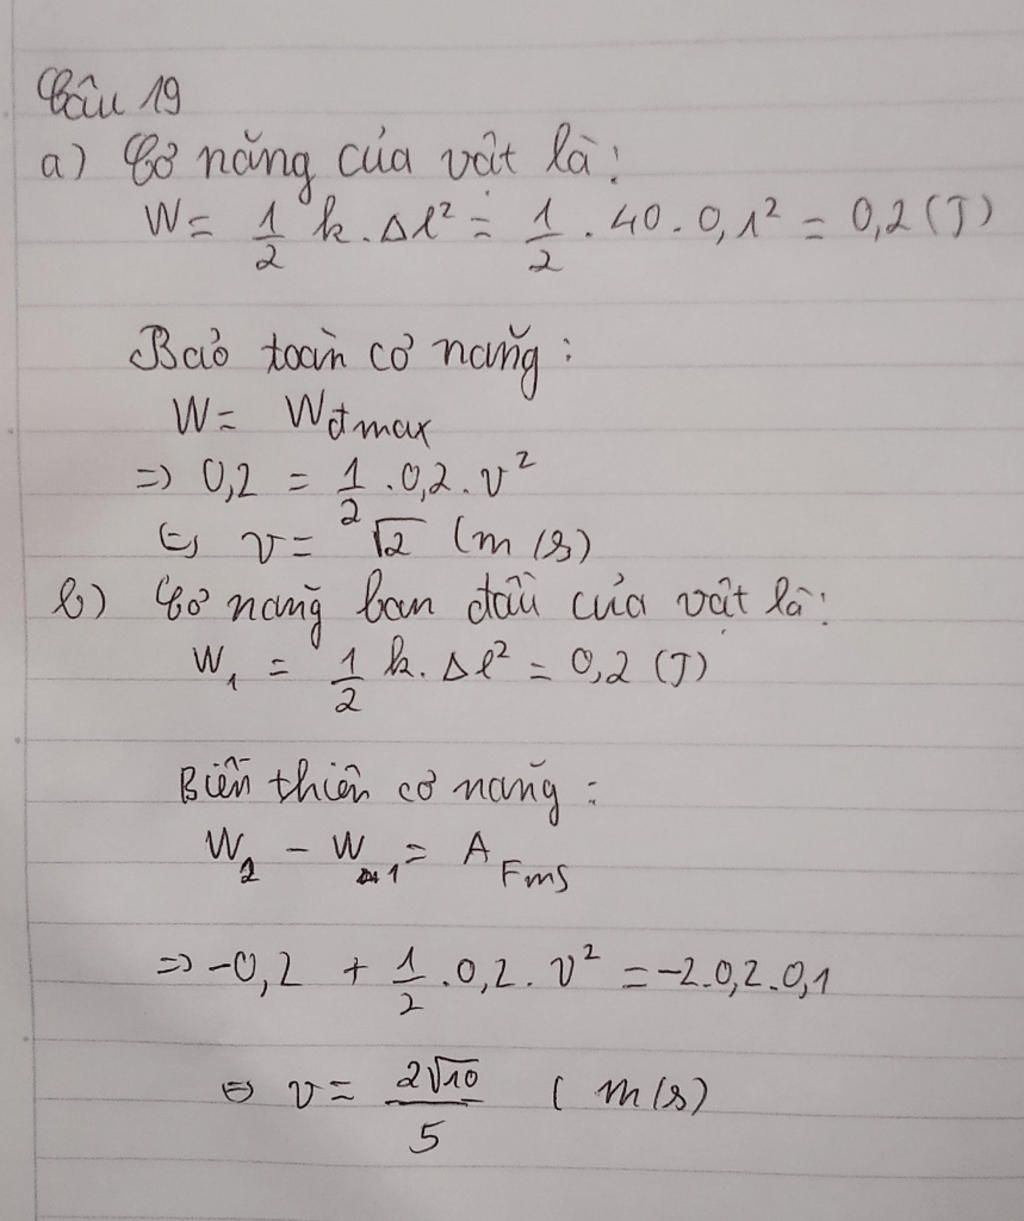 Câu 19
a) Cơ năng của vật là:
W = 1/2 k. Δl² = 1/2 . 40 . 0,1² = 0,2 (J)
Bảo toàn cơ năng :
W = Wđmax
=> 0,2 = 1/2 . 0,2 . v²
<=> v = √2 (m/s)
b) Cơ năng ban đầu của vật là:
W₁ = 1/2 k. Δl² = 0,2 (J)
Biến thiên cơ năng :
W₂ - W₁ = A Fms
=> -0,2 + 1/2 . 0,2 . v² = -2.0,2.0,1
<=> v = 2√10/5 (m/s)